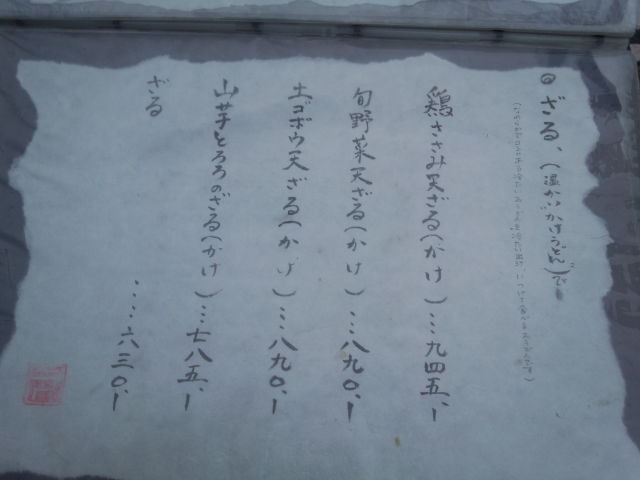 ◎ ざる、(温かいかけうどん)で
鶏ささみ天ざる(かけ)…九四五、ー
旬野菜天ざる(かけ)…八九〇、ー
土ゴボウ天ざる(かけ)…八九〇、ー
山芋とろろのざる(かけ)…七八五、ー
ざる…六三〇、ー